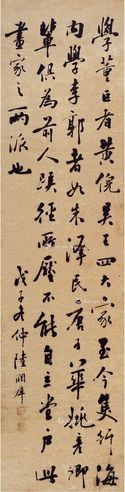 學董巨者黃倪吳王四大家至今隻行海
內學李郭者如朱澤民唐子華姚彥卿
輩俱為前人蹊徑所壓不能自立堂戶此
畫家之兩派也
戊子冬仲陸潤庠